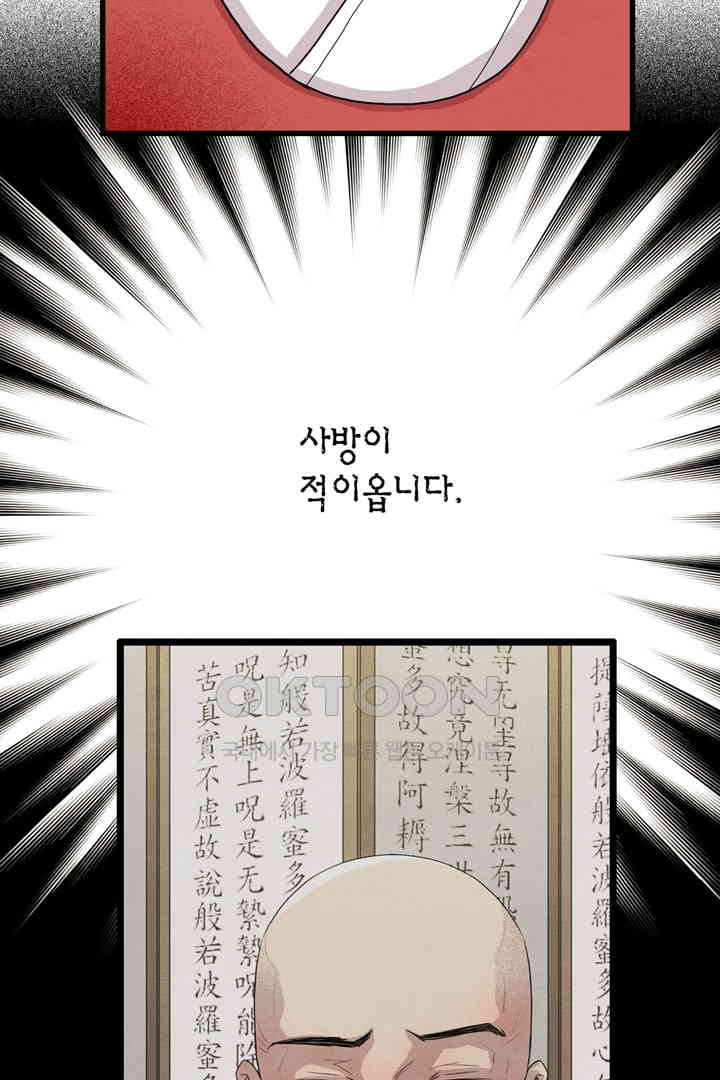 사방이
적이옵니다.
OKTOON
국내에서 가장 빠른 웹툰 오케이툰
提薩埵依般若波羅蜜多故心
罣无罣导故無有恐
想究竟涅槃三世
蜜多故得阿耨
知般若波羅蜜多
呪是無上呪是无䓁䓁呪能除
苦真實不虛故說般若波羅蜜多